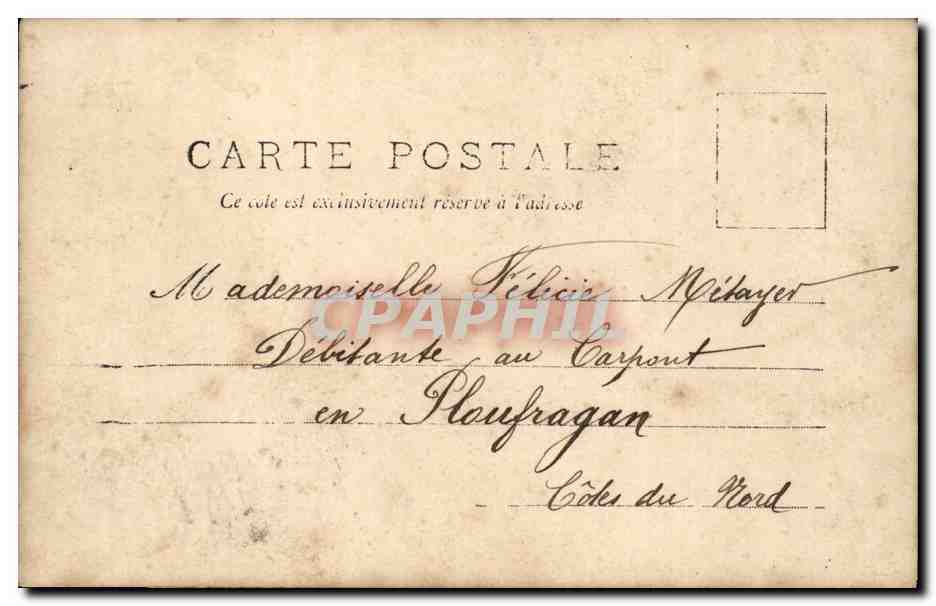 CARTE POSTALE
Ce cote est exclusivement réservé à l'adresse
Mademoiselle Félicie Métayer
CPAPHIL
Débitante au Carpont
en Ploufragan
Côtes du Nord